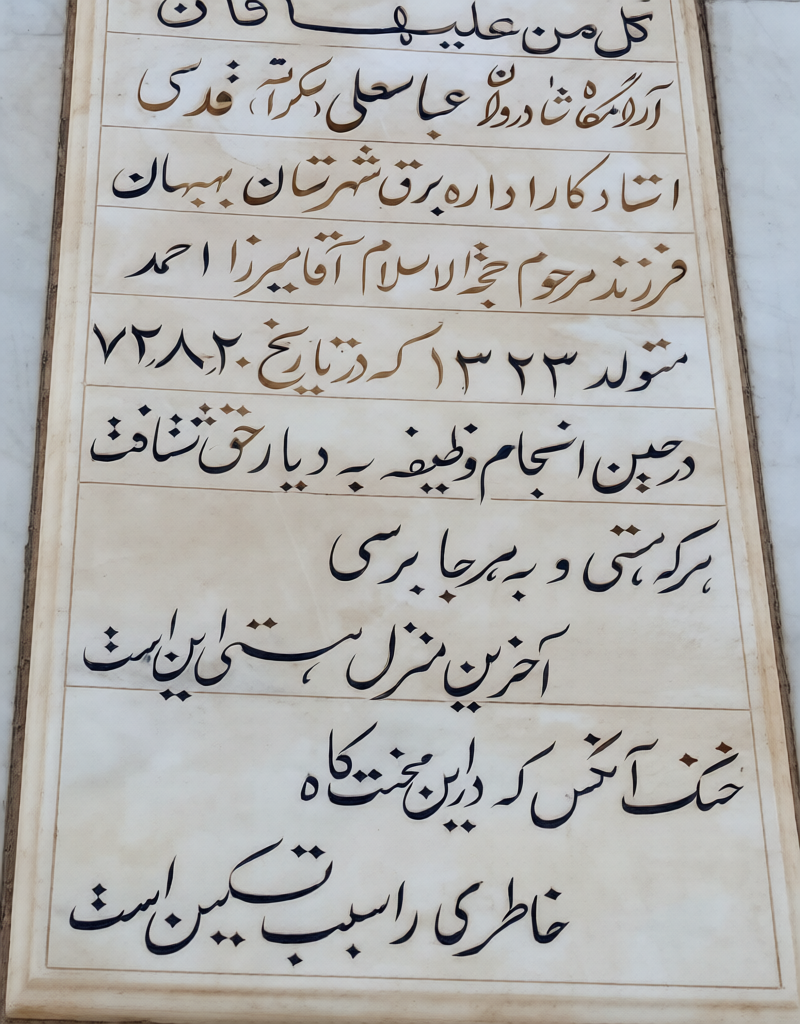 کل من علیها فان
آرامگاه شادروان عباسعلی (کرامت) قدسی
استاد کار اداره برق شهرستان بهبهان
فرزند مرحوم حجةالاسلام آقامیرزا احمد
متولد ۱۳۲۳ که در تاریخ ۷۲٫۸٫۲۰
در حین انجام وظیفه به دیار حق شتافت
هر که هستی و به هر جا برسی
آخرین منزل هستی این است
خنک آنکس که در این محنت کاه
خاطری را سبب تسکین است